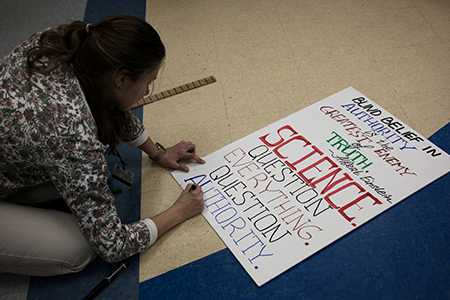 BLIND BELIEF IN
AUTHORITY
is the
GREATEST ENEMY
of
TRUTH.
-Albert Einstein
SCIENCE.
QUESTION
EVERYTHING.
QUESTION
AUTHORITY.